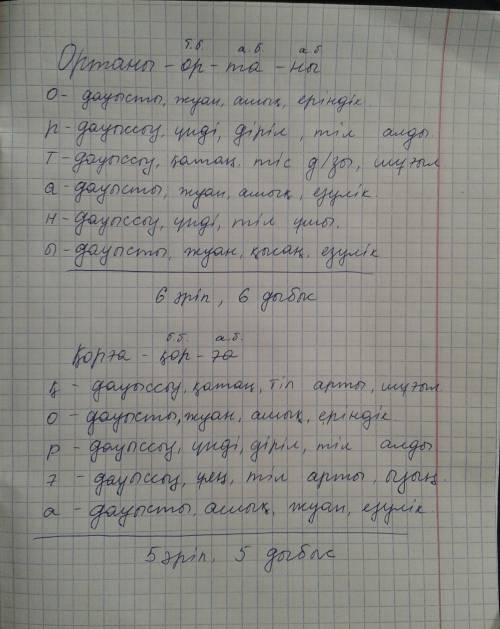 т.б. а.б. а.б
Ортаны – ор – та – ны
О – дауысты, жуан, ашық, еріндік.
р – дауыссыз, үнді, діріл, тіл алды
Т – дауыссыз, қатаң, тіс д/зы, шұғыл
а – дауысты, жуан, ашық, езулік.
н – дауыссыз, үнді, тіл ұшы.
ы – дауысты, жуан, қысаң, езулік
6 әріп, 6 дыбыс
б.б. а.б.
қорға – қор – ға
қ – дауыссыз, қатаң, тіл арты, шұғыл
о – дауысты, жуан, ашық, еріндік
р – дауыссыз, үнді, діріл, тіл алды
ғ – дауыссыз, ұяң, тіл арты, ызың.
а – дауысты, ашық, жуан, езулік
5 әріп, 5 дыбыс